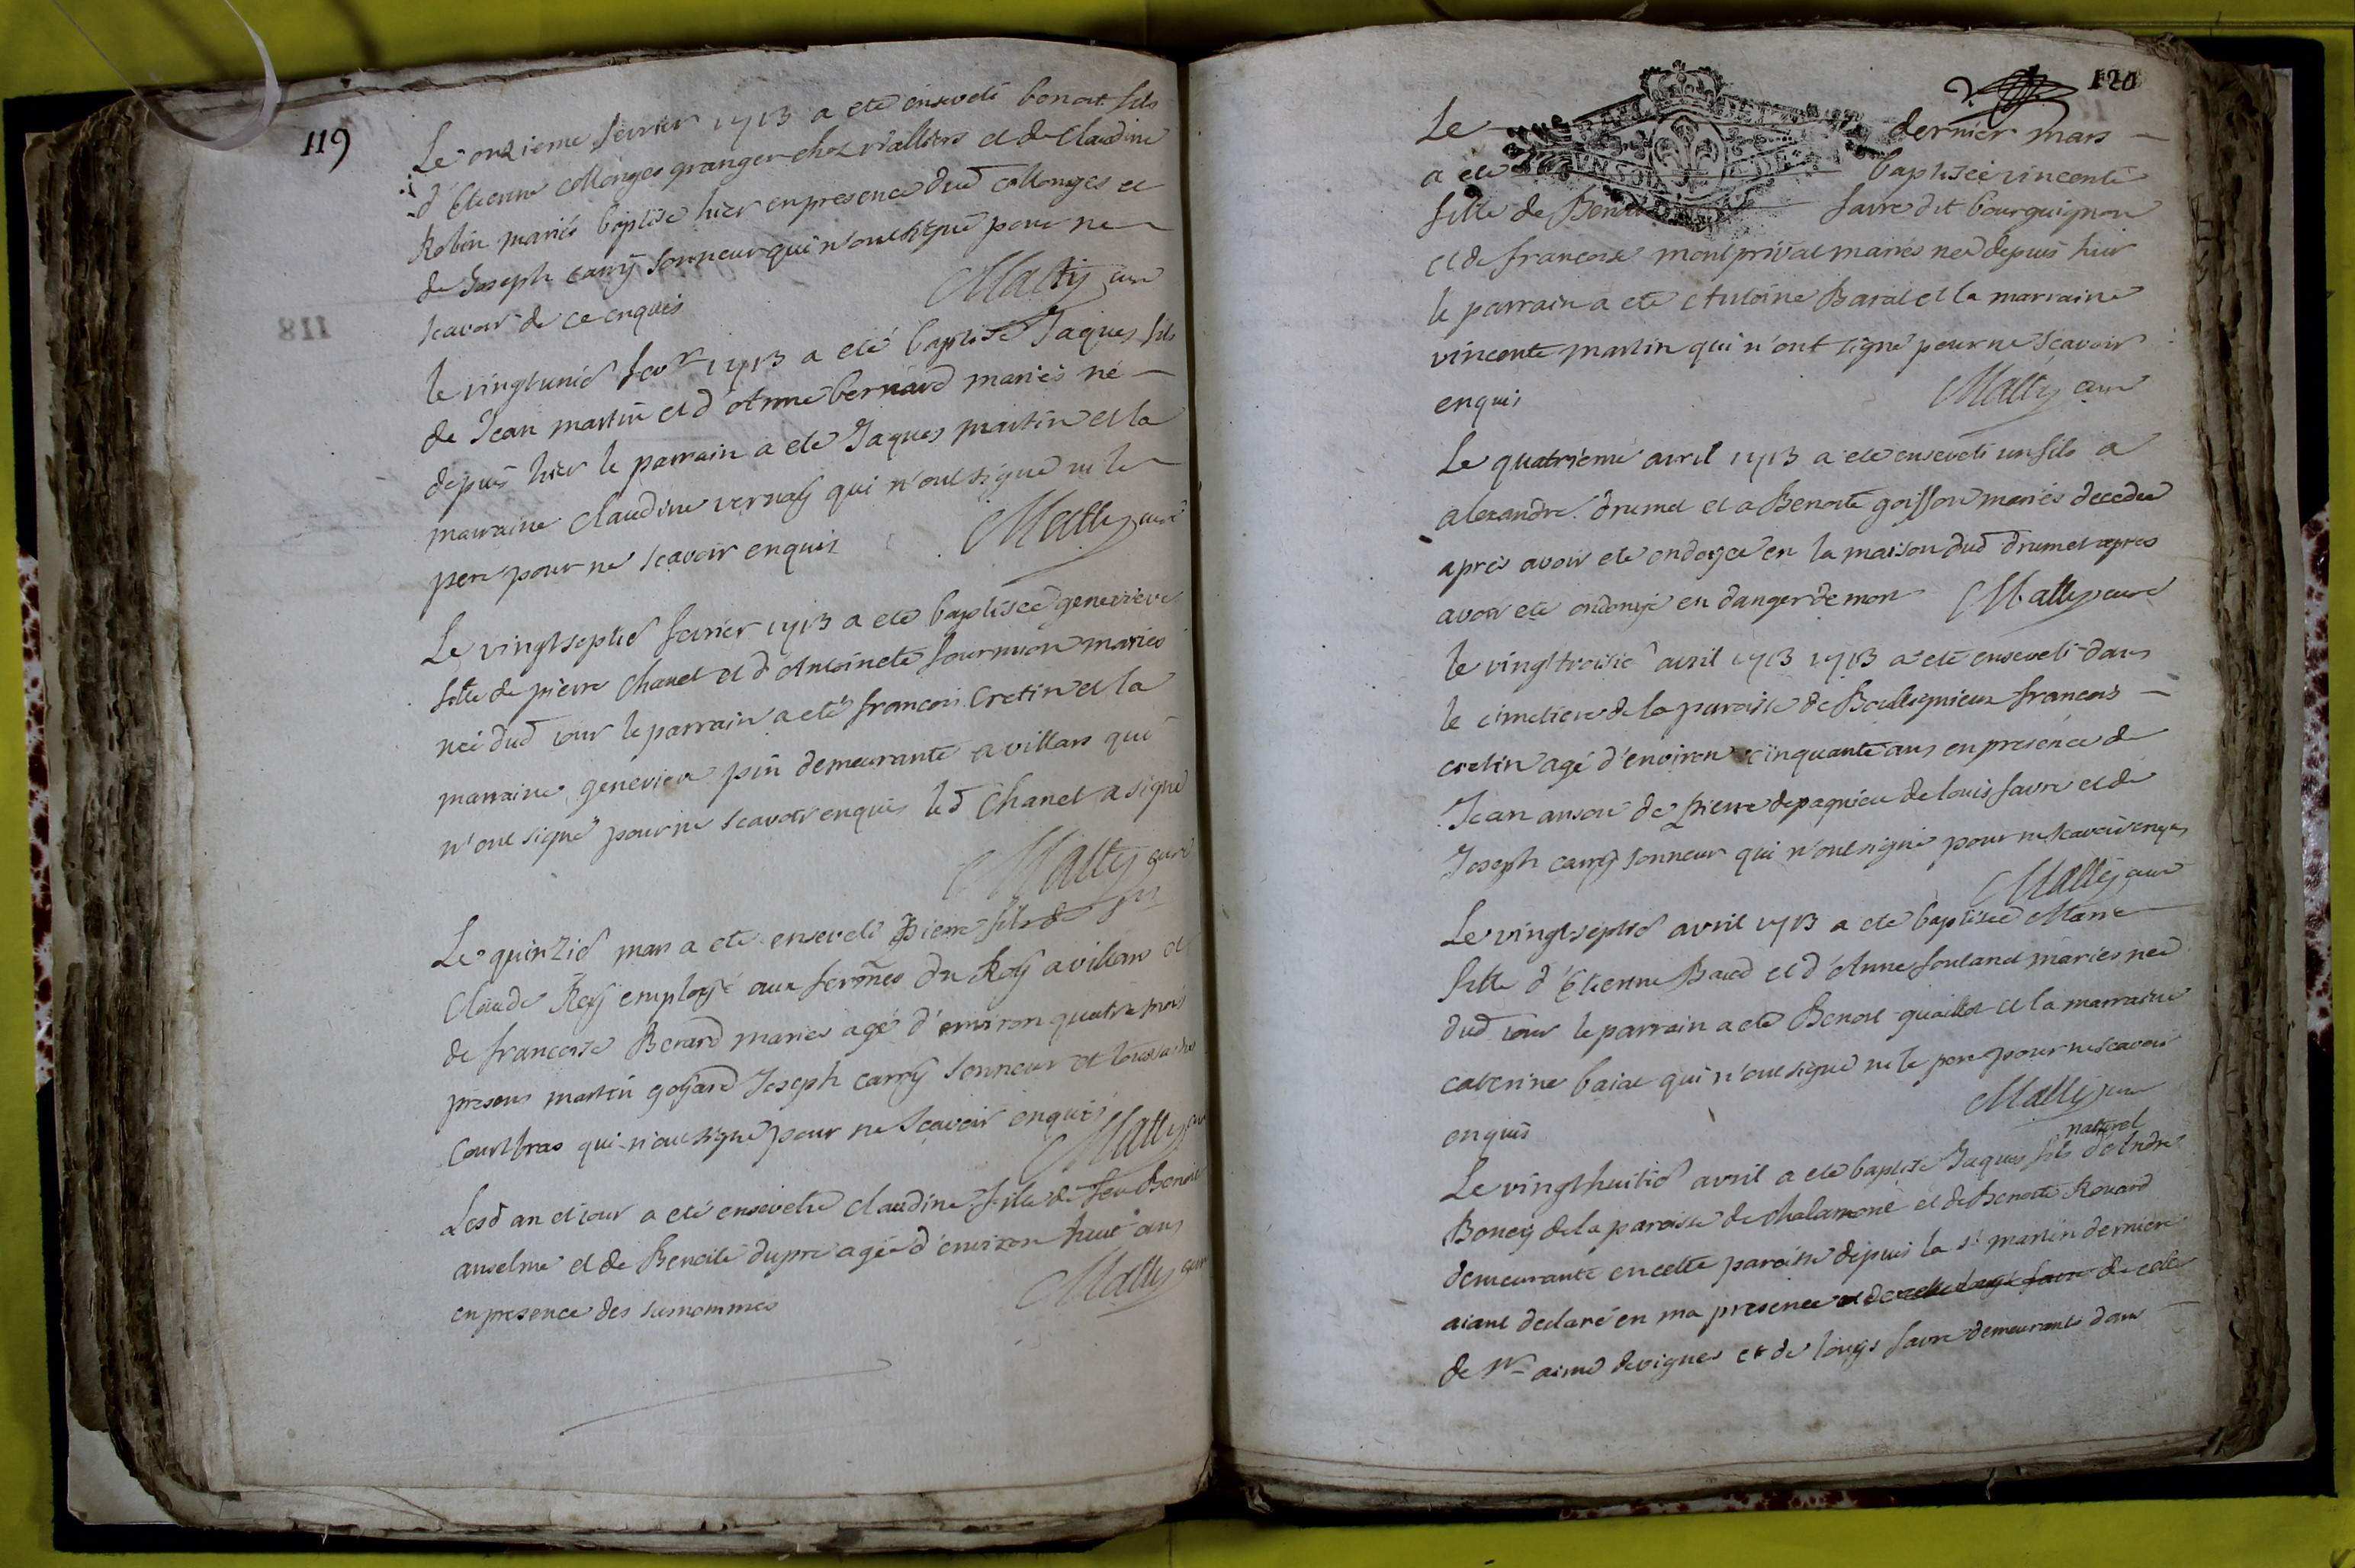 119
Le onzieme fevrier 1713 a eté enseveli benoit fils
d'Etienne Collonges granger chez et de Claudine
Robin mariés baptisé hier en presence dud collonges et
de Joseph carry sonneur qui n'ont signé pour ne
scavoir de ce enquis
Matty curé
le vingtunie fevr 1713 a eté baptisé Jaques fils
de Jean martin et d'Anne bernard mariés né
depuis hier le parrain a eté Jaques martin et la
marraine Claudine vernay qui n'ont signé ni le
pere pour ne scavoir enquis
Matty curé
Le vingtseptie fevrier 1713 a eté baptisée genevieve
fille de pierre Chanel et d'Antoinete fournion mariés
née dud jour le parrain a eté francois Cretin et la
marraine genevieve pin demeurante a villars qui
n'ont signé pour ne scavoir enquis led Chanel a signé
Matty curé
Le quinzie mars a eté enseveli Pierre fils de Sr
Claude Rey employé aux fermes du Roy a villars et
de francoise Berard mariés agé d'environ quatre mois
presens martin goyard Joseph carry sonneur et
Courtbras qui n'ont signé pour ne scavoir enquis
Matty curé
Lesd an et jour a eté ensevelie claudine fille de feu Benoit
anselme et de Benoite dupre agée d'environ huit ans
en presence des susnommes
Matty curé
120
Le dernier mars
a eté baptisée vincente
fille de Benoit favre dit bourguignon
et de francoise montprivat mariés née depuis hier
le parrain a eté Antoine Barat et la marraine
vincente martin qui n'ont signé pour ne scavoir
enquis
Matty curé
Le quatrieme avril 1713 a eté enseveli un fils a
alexandre drumet et a Benoite goisson mariés decedé
aprés avoir eté ondoyé en la maison dud drumet apres
avoir eté ondoyé en danger de mort
Matty curé
le vingttroisie avril 1713 1713 a eté enseveli dans
le cimetiere de la paroisse de Bouligneux francois
cretin agé d'environ cinquante ans en presence de
Jean anson de Pierre depagnieu de louis favre et de
Joseph carry sonneur qui n'ont signé pour ne scavoir enquis
Matty curé
Le vingtseptie avril 1713 a eté baptisée Marie
fille d'Etienne Baud et d'Anne foutanel mariés née
dud jour le parrain a eté Benoit guaillot et la marraine
caterine baiat qui n'ont signé ni le pere pour ne scavoir
enquis
Matty curé
naturel
Le vingthuitie avril a eté baptisé Jaques fils d'Andre
Boney de la paroisse de chalamont et de Benoite Rouard
demeurante en cette paroisse depuis la St martin derniere
aiant declaré en ma presence de celle
de Mr aimé devignes et de louys favre demeurants dans